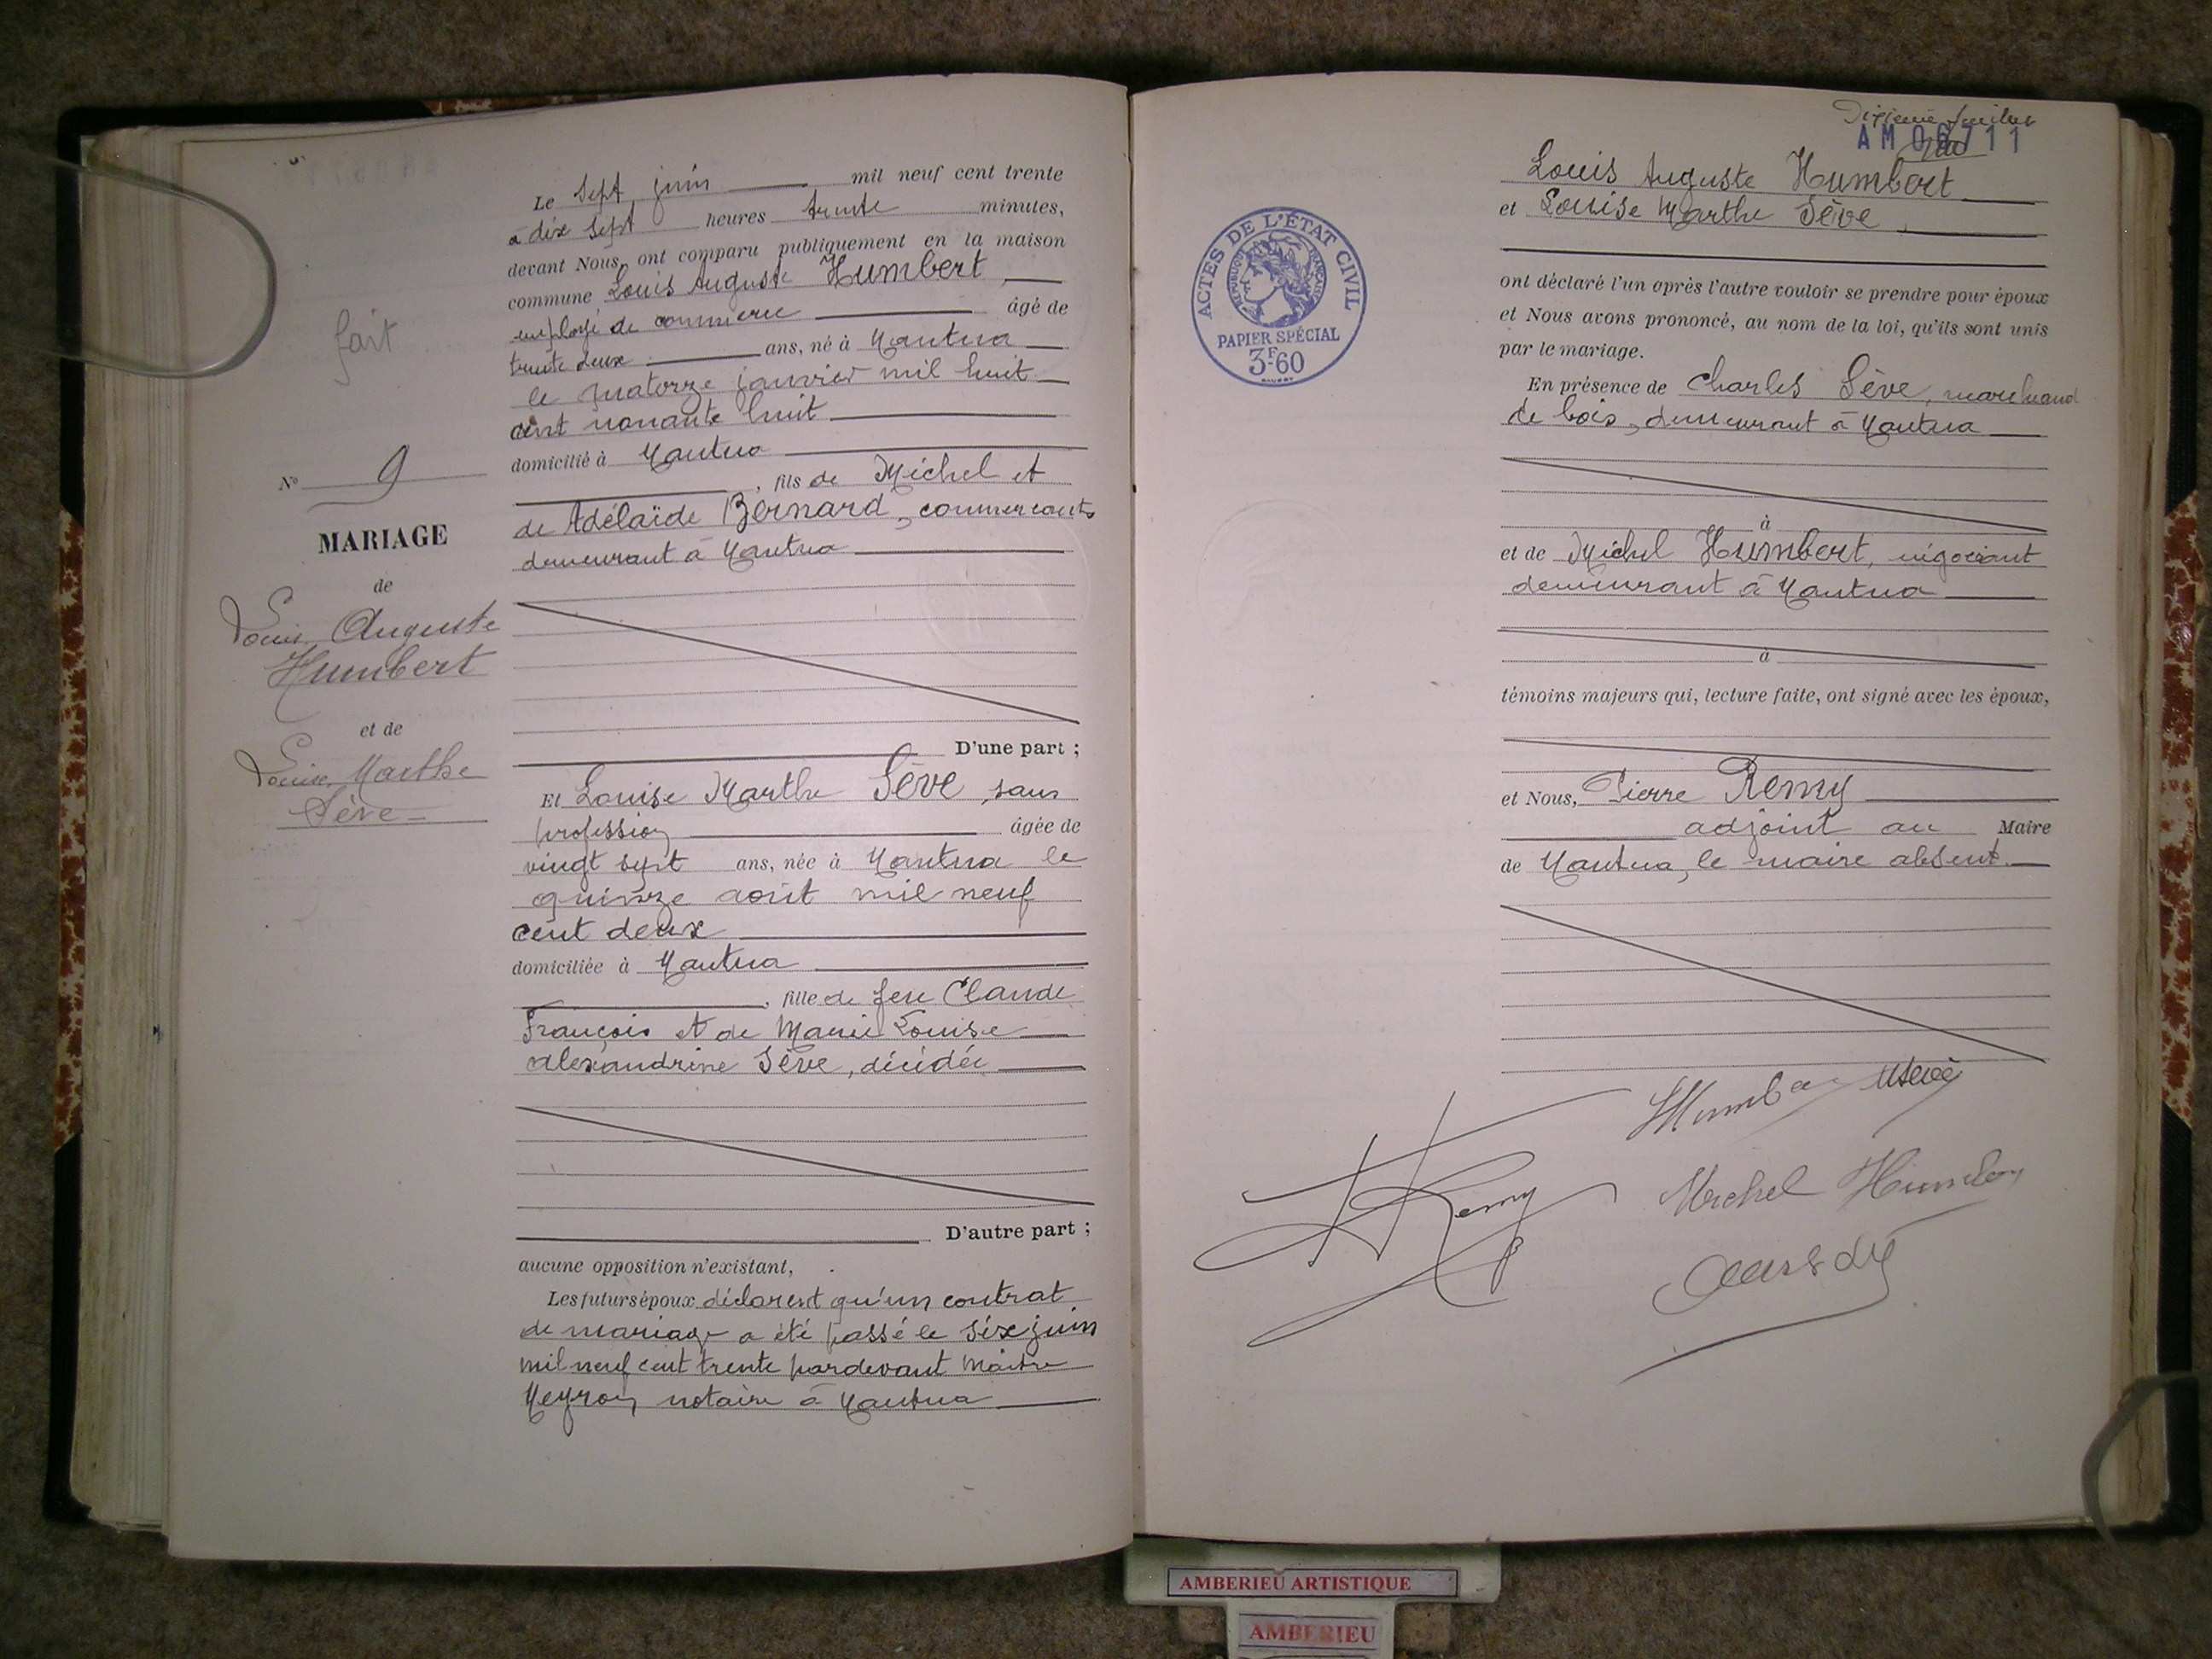 fait
N° 9
MARIAGE
de
Louis Auguste
Humbert
et de
Louise Marthe
Sève
Le sept juin mil neuf cent trente
à dix sept heures trente minutes,
devant Nous, ont comparu publiquement en la maison
commune Louis Auguste Humbert
employé de commerce âgé de
trente deux ans, né à Nantua
le quatorze janvier mil huit
cent nonante huit
domicilié à Nantua
, fils de Michel et
de Adélaïde Bernard, commerçants
demeurant à Nantua
D'une part ;
Et Louise Marthe Sève, sans
profession âgée de
vingt sept ans, née à Nantua le
quinze août mil neuf
cent deux
domiciliée à Nantua
, fille de feu Claude
François et de Marie Louise
Alexandrine Sève, décédée
D'autre part ;
aucune opposition n'existant,
Les futurs époux déclarent qu'un contrat
de mariage a été passé le six juin
mil neuf cent trente pardevant Maître
Neyron notaire à Nantua
AM 06711
Louis Auguste Humbert
et Louise Marthe Sève
ACTES DE L'ÉTAT CIVIL
RÉPUBLIQUE FRANÇAISE
PAPIER SPÉCIAL
3F60
ont déclaré l'un après l'autre vouloir se prendre pour époux
et Nous avons prononcé, au nom de la loi, qu'ils sont unis
par le mariage.
En présence de Charles Sève, marchand
de bois, demeurant à Nantua
à
et de Michel Humbert, négociant
demeurant à Nantua
à
témoins majeurs qui, lecture faite, ont signé avec les époux,
et Nous, Pierre Remy
adjoint au Maire
de Nantua, le maire absent.
Humbert MSève
Remy
Michel Humbert
AMBERIEU ARTISTIQUE
AMBERIEU